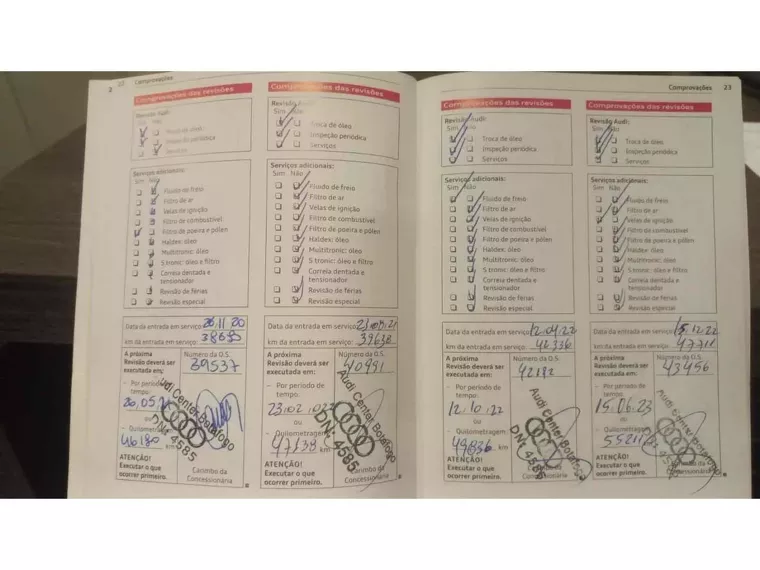 2
22
Comprovações
Comprovações das revisões
Revisão Audi:
Sim Não
Troca de óleo
Inspeção periódica
Serviços
Serviços adicionais:
Sim Não
Fluido de freio
Filtro de ar
Velas de ignição
Filtro de combustível
Filtro de poeira e pólen
Haldex: óleo
Multitronic: óleo
S tronic: óleo e filtro
Correia dentada e
tensionador
Revisão de férias
Revisão especial
Data da entrada em serviço 26 11 20
km da entrada em serviço: 38680
A próxima
Revisão deverá ser
executada em:
Número da O.S.
39537
— Por período de
tempo:
ou
— Quilometragem:
46180 km
ATENÇÃO!
Executar o que
ocorrer primeiro.
Audi Center Botafogo
DN: 4585
Carimbo da
Concessionária
Comprovações das revisões
Revisão Audi:
Sim Não
Troca de óleo
Inspeção periódica
Serviços
Serviços adicionais:
Sim Não
Fluido de freio
Filtro de ar
Velas de ignição
Filtro de combustível
Filtro de poeira e pólen
Haldex: óleo
Multitronic: óleo
S tronic: óleo e filtro
Correia dentada e
tensionador
Revisão de férias
Revisão especial
Data da entrada em serviço
km da entrada em serviço: 39638
A próxima
Revisão deverá ser
executada em:
Número da O.S.
40991
— Por período de
tempo:
ou
— Quilometragem:
47138 km
ATENÇÃO!
Executar o que
ocorrer primeiro.
Audi Center Botafogo
DN: 4585
Carimbo da
Concessionária
Comprovações 23
Comprovações das revisões
Revisão Audi:
Sim Não
Troca de óleo
Inspeção periódica
Serviços
Serviços adicionais:
Sim Não
Fluido de freio
Filtro de ar
Velas de ignição
Filtro de combustível
Filtro de poeira e pólen
Haldex: óleo
Multitronic: óleo
S tronic: óleo e filtro
Correia dentada e
tensionador
Revisão de férias
Revisão especial
Data da entrada em serviço 12.04.22
km da entrada em serviço: 42336
A próxima
Revisão deverá ser
executada em:
Número da O.S.
42182
— Por período de
tempo:
12.10.22
ou
— Quilometragem:
49836 km
ATENÇÃO!
Executar o que
ocorrer primeiro.
Audi Center Botafogo
DN: 4585
Carimbo da
Concessionária
Comprovações das revisões
Revisão Audi:
Sim Não
Troca de óleo
Inspeção periódica
Serviços
Serviços adicionais:
Sim Não
Fluido de freio
Filtro de ar
Velas de ignição
Filtro de combustível
Filtro de poeira e pólen
Haldex: óleo
Multitronic: óleo
S tronic: óleo e filtro
Correia dentada e
tensionador
Revisão de férias
Revisão especial
Data da entrada em serviço 15.12.22
km da entrada em serviço: 47711
A próxima
Revisão deverá ser
executada em:
Número da O.S.
43456
— Por período de
tempo:
15.06.23
ou
— Quilometragem:
55211
ATENÇÃO!
Executar o que
ocorrer primeiro.
Audi Center Botafogo
DN: 4585
Carimbo da
Concessionária